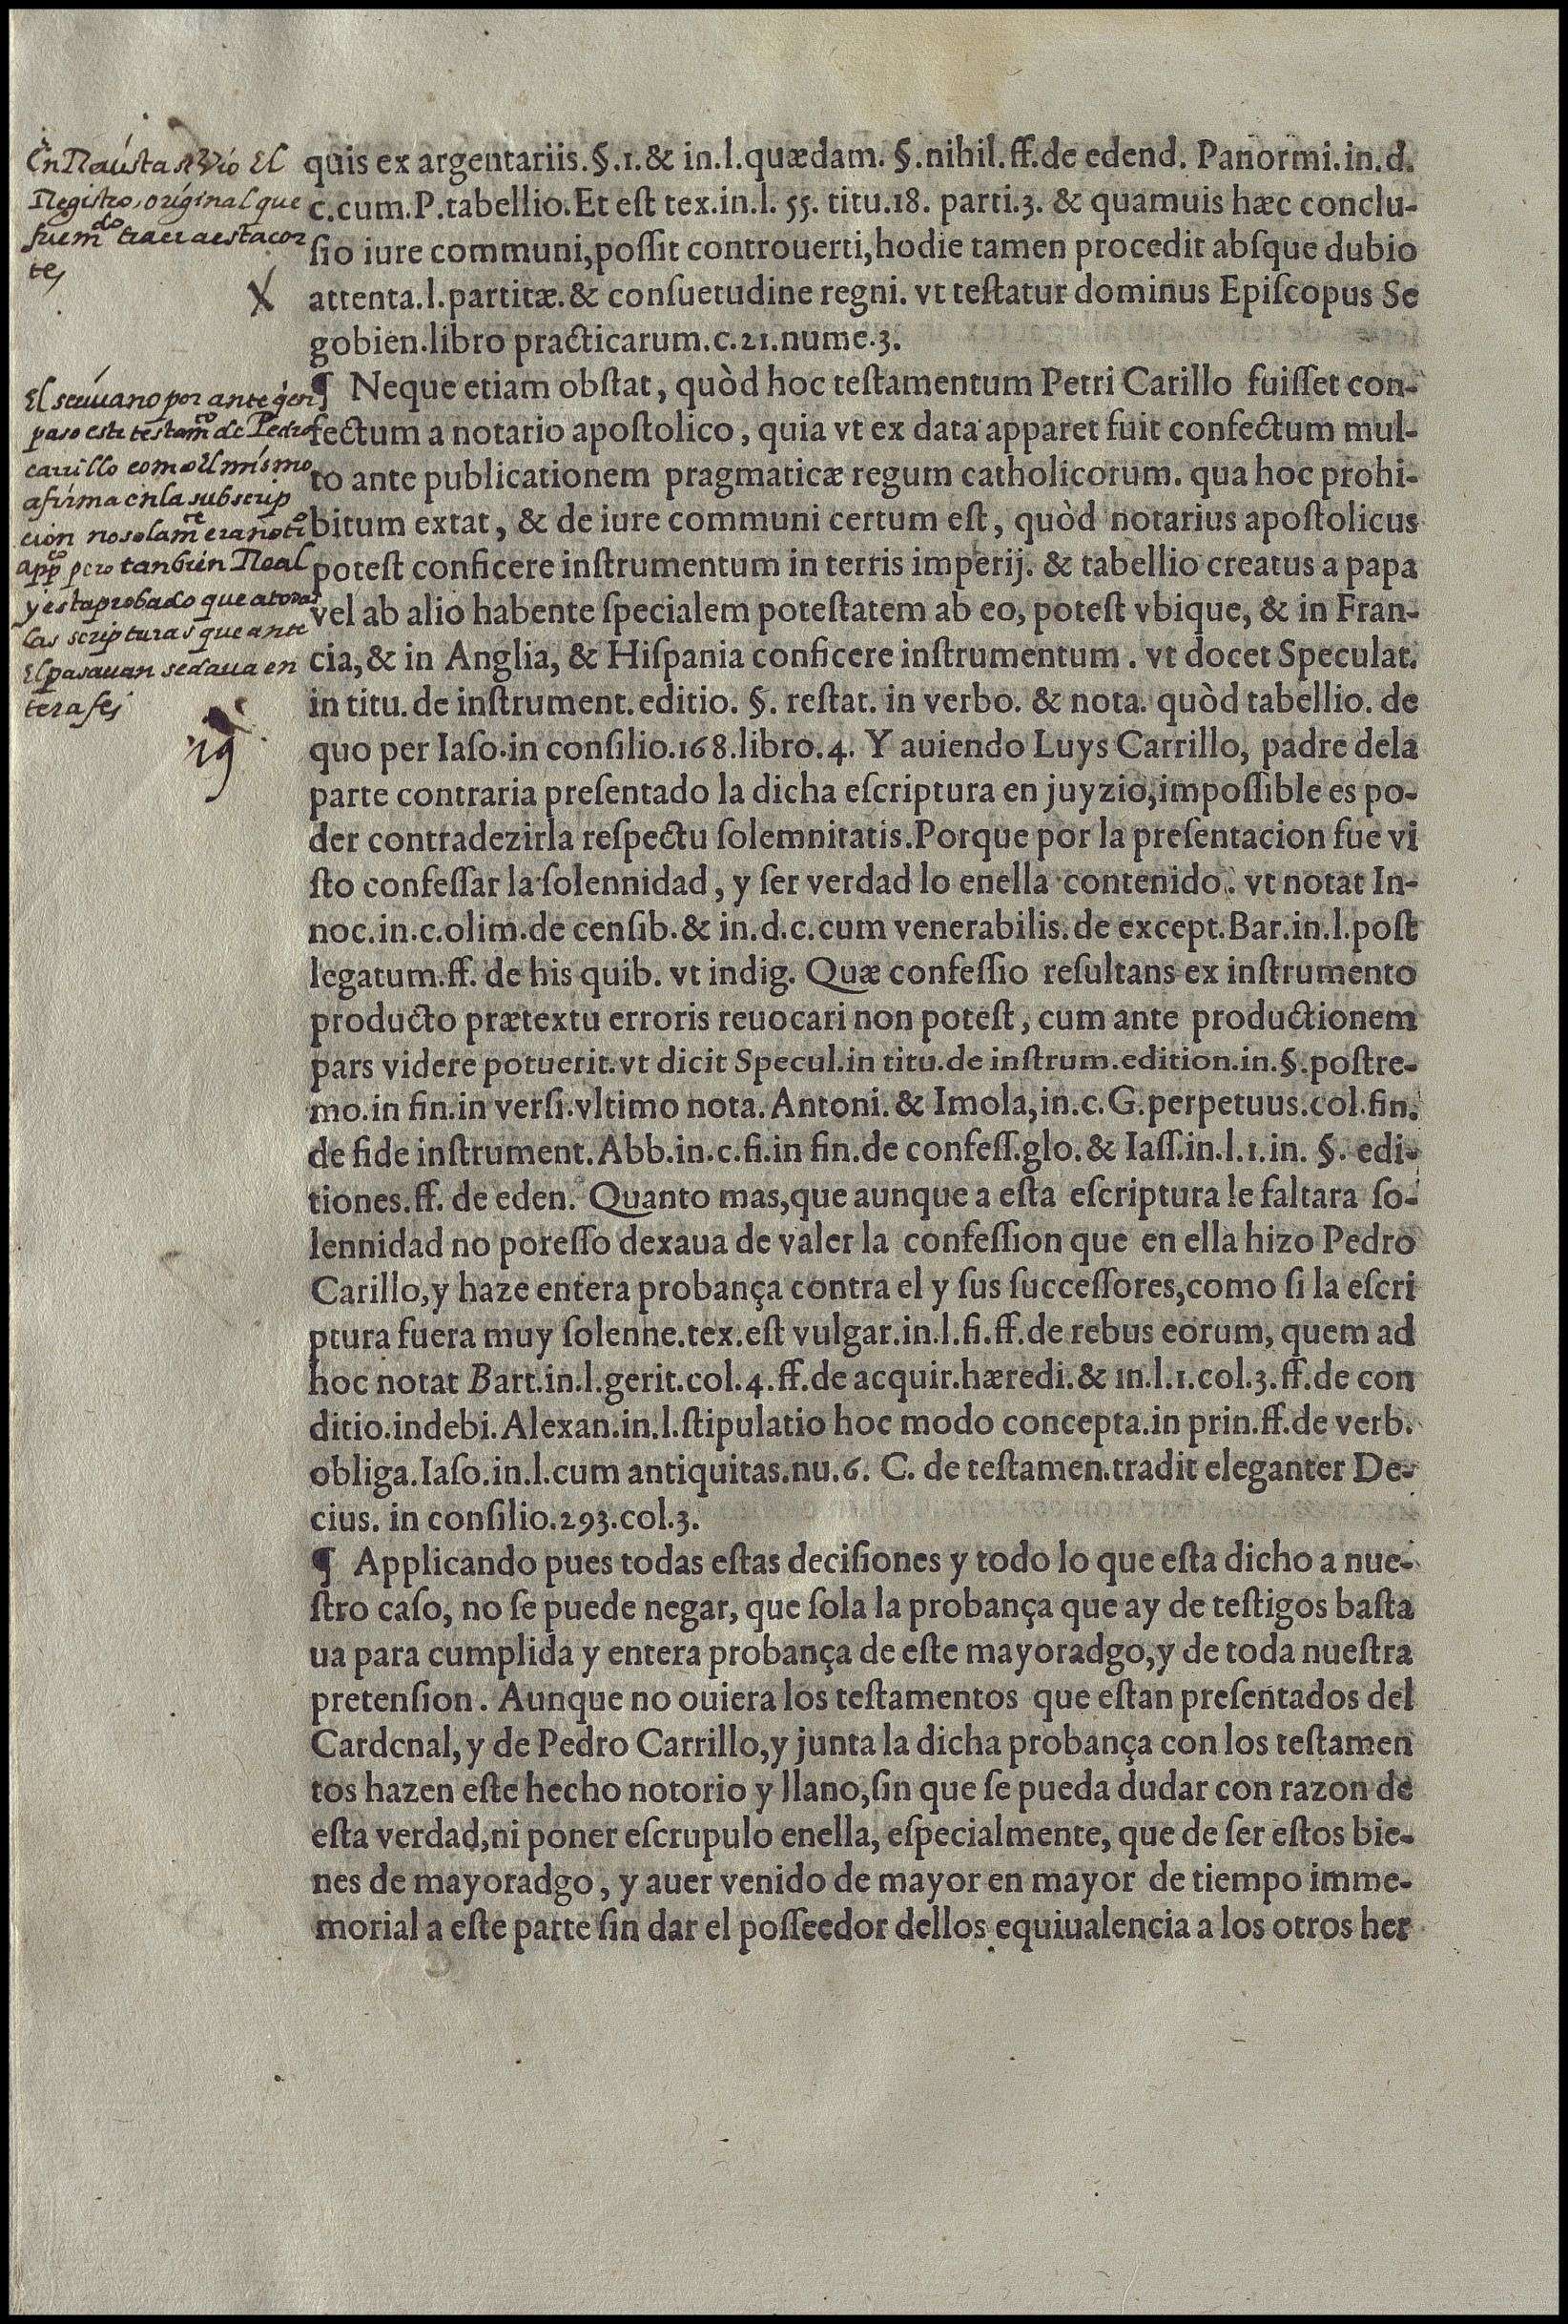 En Reuista se vio El
Registro, original que
fue mdo traer a esta cor
te,
X
quis ex argentariis.§.1.& in.l.quædam. §.nihil.ff.de edend. Panormi.in.d.
c.cum.P.tabellio.Et eſt tex.in.l. 55. titu.18. parti.3. & quamuis hæc conclu-
ſio iure communi,poſſit controuerti,hodie tamen procedit abſque dubio
attenta.l.partitæ.& conſuetudine regni. vt teſtatur dominus Epiſcopus Se
gobien.libro practicarum.c.21.nume.3.
El scriuano por ante qen
paso este testamto de Pedro
carrillo como El mismo
afirma en la subscrip
cion no solamte era noto
appco pero tanbien Real
y esta probado que a todas
las scripturas que ante
El pasauan se daua en
tera fe,
¶ Neque etiam obſtat, quòd hoc teſtamentum Petri Carillo fuiſſet con-
fectum a notario apoſtolico, quia vt ex data apparet fuit confectum mul-
to ante publicationem pragmaticæ regum catholicorum. qua hoc prohi-
bitum extat, & de iure communi certum eſt, quòd notarius apoſtolicus
poteſt conficere inſtrumentum in terris imperij. & tabellio creatus a papa
vel ab alio habente ſpecialem poteſtatem ab eo, poteſt vbique, & in Fran-
cia, & in Anglia, & Hiſpania conficere inſtrumentum. vt docet Speculat.
in titu. de inſtrument. editio. §. reſtat. in verbo. & nota. quòd tabellio. de
quo per Iaſo.in conſilio.168.libro.4. Y auiendo Luys Carrillo, padre dela
parte contraria preſentado la dicha eſcriptura en juyzio,impoſſible es po-
der contradezirla reſpectu ſolemnitatis.Porque por la preſentacion fue vi
ſto confeſſar la ſolennidad, y ſer verdad lo enella contenido. vt notat In-
noc.in.c.olim.de cenſib.& in.d.c.cum venerabilis.de except.Bar.in.l.poſt
legatum.ff. de his quib. vt indig. Quæ confeſſio reſultans ex inſtrumento
producto prætextu erroris reuocari non poteſt, cum ante productionem
pars videre potuerit.vt dicit Specul.in titu.de inſtrum.edition.in.§.poſtre-
mo.in fin.in verſi.vltimo nota. Antoni. & Imola,in.c.G.perpetuus.col.fin.
de fide inſtrument.Abb.in.c.fi.in fin.de confeſſ.glo.& Iaſſ.in.l.1.in. §. edi-
tiones.ff. de eden. Quanto mas,que aunque a eſta eſcriptura le faltara ſo-
lennidad no poreſſo dexaua de valer la confeſſion que en ella hizo Pedro
Carillo,y haze entera probança contra el y ſus ſucceſſores,como ſi la eſcri
ptura fuera muy ſolenne.tex.eſt vulgar.in.l.fi.ff.de rebus eorum, quem ad
hoc notat Bart.in.l.gerit.col.4.ff.de acquir.hæredi.& in.l.1.col.3.ff.de con
ditio.indebi.Alexan.in.l.ſtipulatio hoc modo concepta.in prin.ff.de verb.
obliga.Iaſo.in.l.cum antiquitas.nu.6. C. de teſtamen.tradit eleganter De-
cius. in conſilio.293.col.3.
¶ Applicando pues todas eſtas deciſiones y todo lo que eſta dicho a nue-
ſtro caſo, no ſe puede negar, que ſola la probança que ay de teſtigos baſta
ua para cumplida y entera probança de eſte mayoradgo,y de toda nueſtra
pretenſion. Aunque no ouiera los teſtamentos que eſtan preſentados del
Cardenal, y de Pedro Carrillo,y junta la dicha probança con los teſtamen
tos hazen eſte hecho notorio y llano,ſin que ſe pueda dudar con razon de
eſta verdad,ni poner eſcrupulo enella, eſpecialmente, que de ſer eſtos bie-
nes de mayoradgo, y auer venido de mayor en mayor de tiempo imme-
morial a eſte parte ſin dar el poſſeedor dellos equiualencia a los otros her